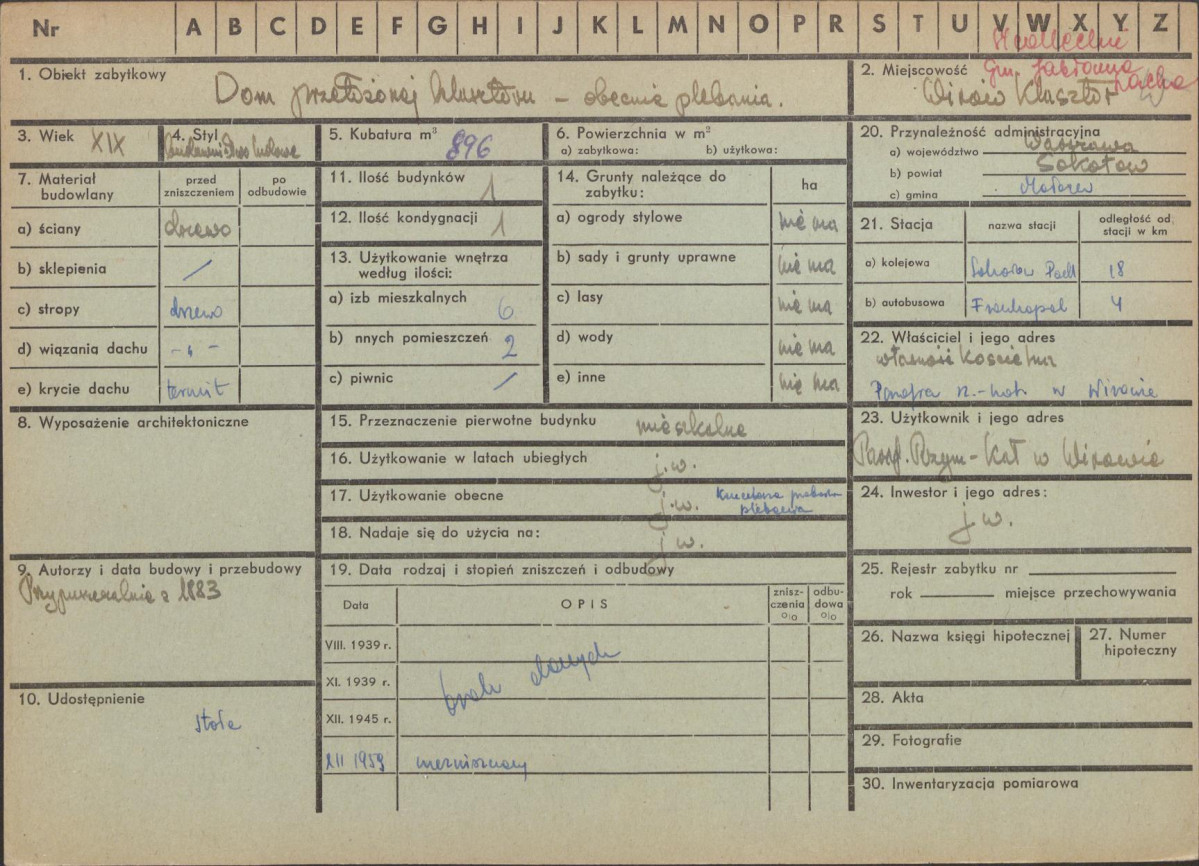 Nr A B C D E F G H I J K L M N O P R S T U V W X Y Z
Gm. Jabłonna Lacka
1. Obiekt zabytkowy
Dom przełożonej klasztoru – obecnie plebania.
2. Miejscowość
Wirów Klasztor
3. Wiek XIX
4. Styl
Budownictwo ludowe
5. Kubatura m³
896
6. Powierzchnia w m²
a) zabytkowa: b) użytkowa:
7. Materiał budowlany
przed zniszczeniem
po odbudowie
a) ściany drzewo
b) sklepienia /
c) stropy drzewo
d) wiązania dachu -„-
e) krycie dachu ternit
8. Wyposażenie architektoniczne
9. Autorzy i data budowy i przebudowy
Przypuszczalnie z 1883
10. Udostępnienie
stałe
11. Ilość budynków 1
12. Ilość kondygnacji 1
13. Użytkowanie wnętrza
według ilości:
a) izb mieszkalnych 6
b) nnych pomieszczeń 2
c) piwnic /
14. Grunty należące do
zabytku:
ha
a) ogrody stylowe nie ma
b) sady i grunty uprawne nie ma
c) lasy nie ma
d) wody nie ma
e) inne nie ma
15. Przeznaczenie pierwotne budynku mieszkalne
16. Użytkowanie w latach ubiegłych j.w.
17. Użytkowanie obecne j.w.
plebania
18. Nadaje się do użycia na: j w.
19. Data rodzaj i stopień zniszczeń i odbudowy
Data
OPIS
znisz-
czenia
%
odbu-
dowa
%
VIII. 1939 r.
XI. 1939 r. brak danych
XII. 1945 r.
XII 1959 niezniszczony
20. Przynależność administracyjna
a) województwo Warszawa
b) powiat Sokołów
c) gmina
21. Stacja
nazwa stacji
odległość od
stacji w km
a) kolejowa Sokołów Podl 18
b) autobusowa Frankopol 4
22. Właściciel i jego adres
własność Kościelna
Parafia rz.-kat. w Wirowie
23. Użytkownik i jego adres
Paraf. Rzym-Kat w Wirowie
24. Inwestor i jego adres:
j w.
25. Rejestr zabytku nr
rok miejsce przechowywania
26. Nazwa księgi hipotecznej
27. Numer
hipoteczny
28. Akta
29. Fotografie
30. Inwentaryzacja pomiarowa